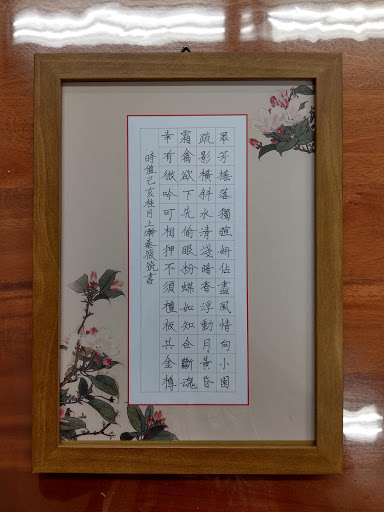 眾芳搖落獨暄妍佔盡風情向小園
疏影橫斜水清淺暗香浮動月黃昏
霜禽欲下先偷眼粉蝶如知合斷魂
幸有微吟可相狎不須檀板共金樽
時值己亥桂月上筱筑書